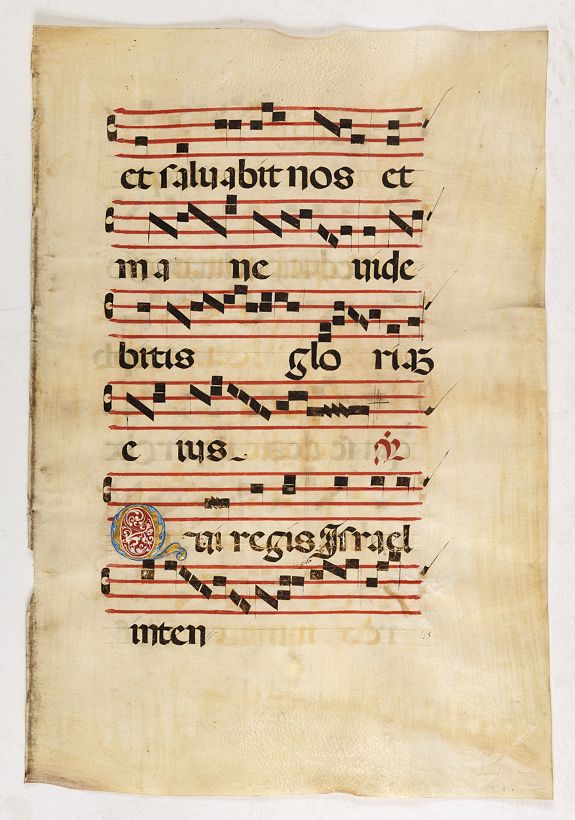 et saluabit nos et
ma ne uide
bitis glo riaȝ
e ius. ℣
Qui regis Israel
inten